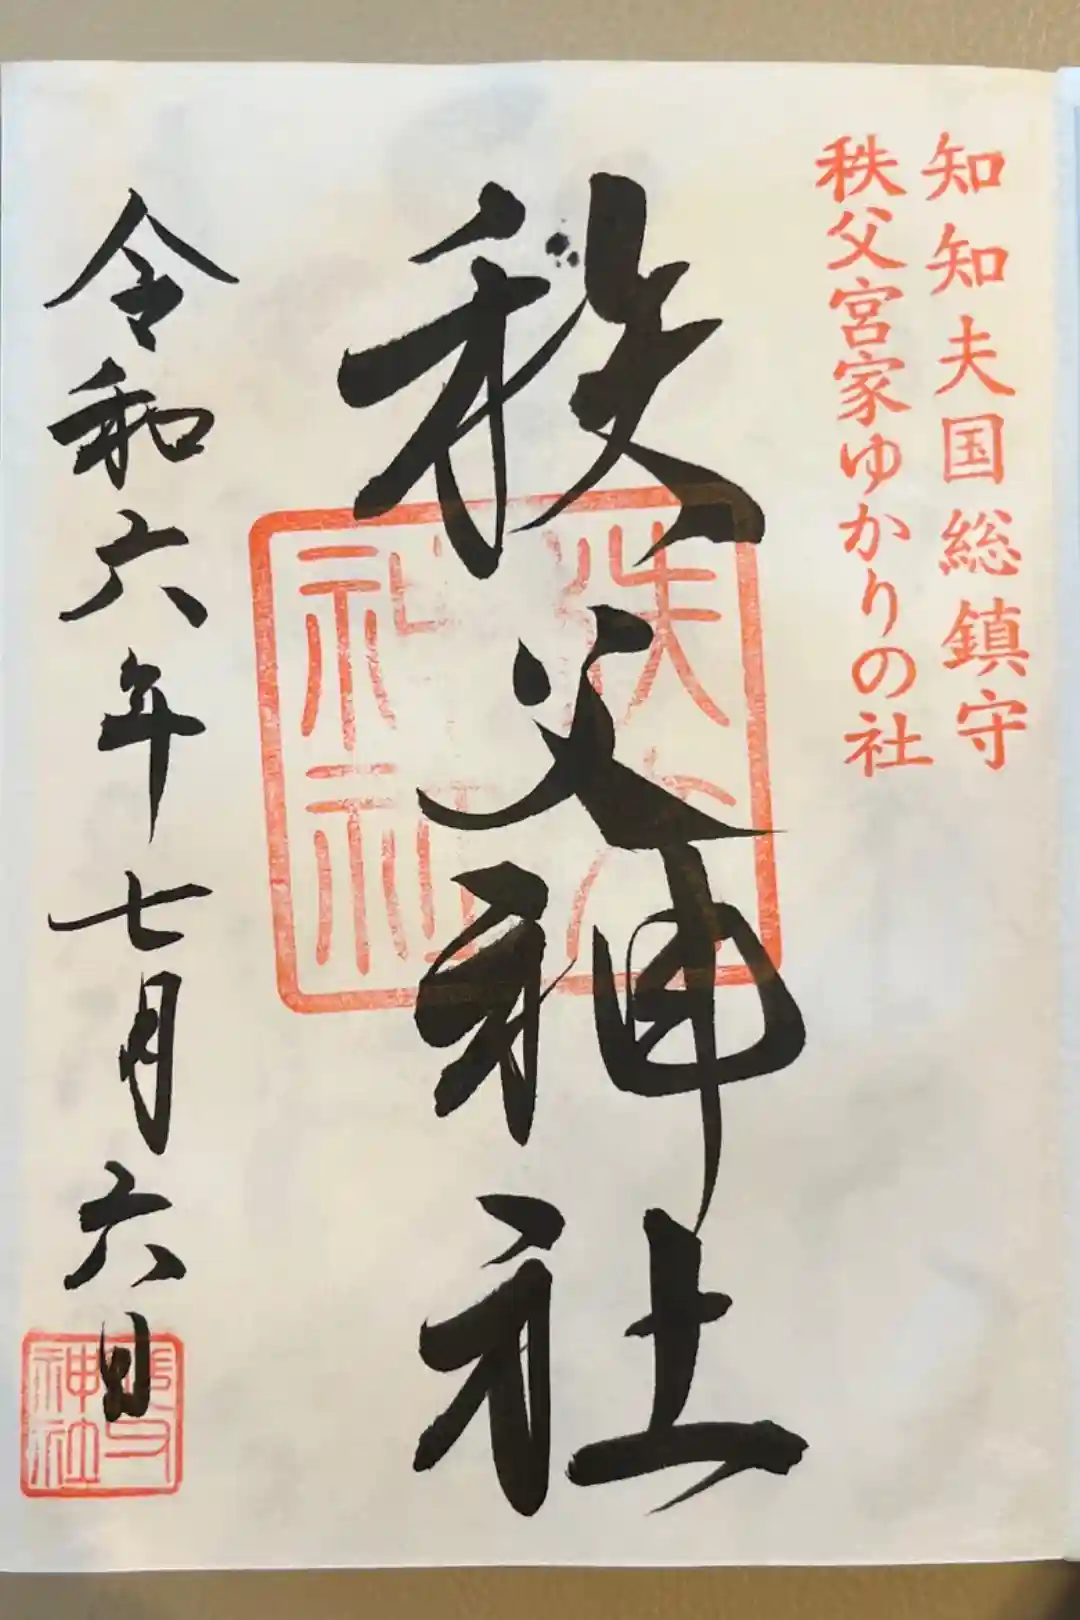 知知夫国総鎮守
秩父宮家ゆかりの社
秩父神社
令和六年七月六日
秩父神社